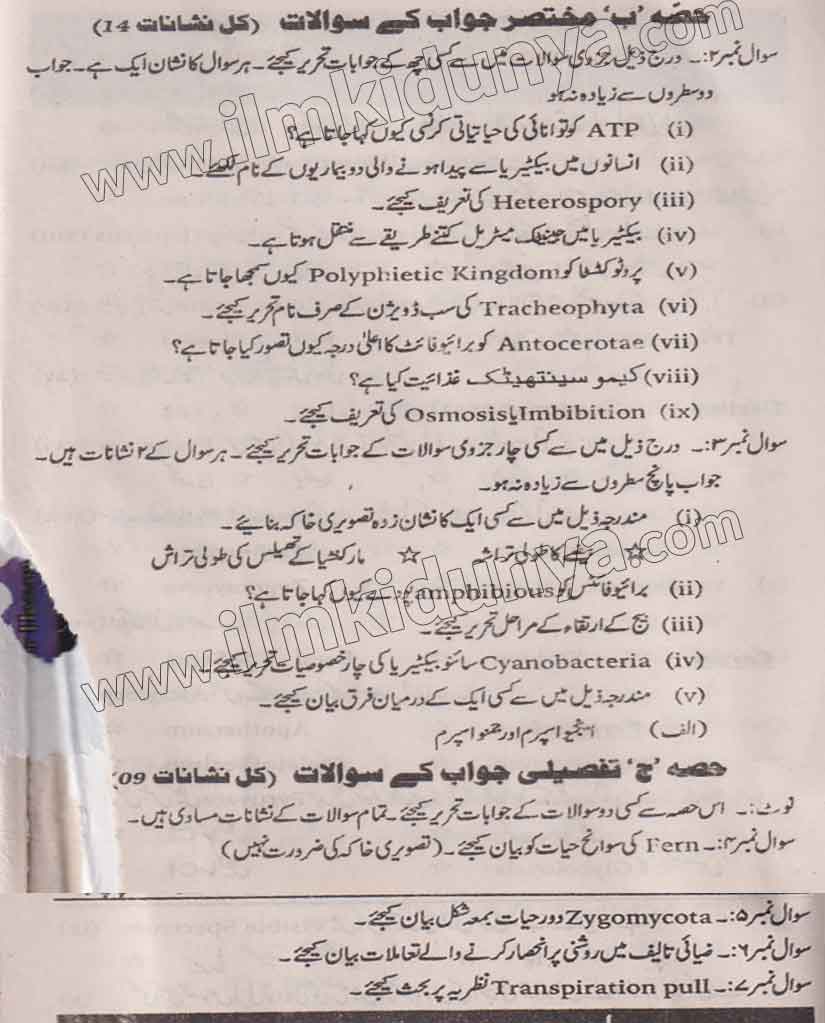 حصہ ’ب‘ مختصر جواب کے سوالات (کل نشانات 14)
سوال نمبر۲:۔ درج ذیل جزوی سوالات میں سے کسی چھ کے جوابات تحریر کیجئے۔ ہر سوال کا نشان ایک ہے۔ جواب
دو سطروں سے زیادہ نہ ہو
(i) ATP کو توانائی کی حیاتیاتی کرنسی کیوں کہا جاتا ہے؟
(ii) انسانوں میں بیکٹیریا سے پیدا ہونے والی دو بیماریوں کے نام لکھئے۔
(iii) Heterospory کی تعریف کیجئے۔
(iv) بیکٹیریا میں جینیٹک میٹریل کتنے طریقے سے منتقل ہوتا ہے۔
(v) پروٹوکٹسٹا کو Polyphietic Kingdom کیوں سمجھا جاتا ہے۔
(vi) Tracheophyta کی سب ڈویژن کے صرف نام تحریر کیجئے۔
(vii) Antocerotae کو برائیوفائٹ کا اعلیٰ درجہ کیوں تصور کیا جاتا ہے؟
(viii) کیمو سینتھیٹک غذائیت کیا ہے؟
(ix) Imbibition یا Osmosis کی تعریف کیجئے۔
سوال نمبر۳:۔ درج ذیل میں سے کسی چار جزوی سوالات کے جوابات تحریر کیجئے۔ ہر سوال کے ۲ نشانات ہیں۔
جواب پانچ سطروں سے زیادہ نہ ہو۔
(i) مندرجہ ذیل میں سے کسی ایک کا نشان زدہ تصویری خاکہ بنائیے۔
☆ پتے کا طولی تراشہ ☆ مارکنشیا کے تھیلس کی طولی تراش
(ii) برائیوفائٹس کو amphibious پودے کیوں کہا جاتا ہے؟
(iii) بیج کے ارتقاء کے مراحل تحریر کیجئے۔
(iv) Cyanobacteria سائنو بیکٹیریا کی چار خصوصیات تحریر کیجئے۔
(v) مندرجہ ذیل میں سے کسی ایک کے درمیان فرق بیان کیجئے۔
(الف) انجیو اسپرم اور جمنو اسپرم
حصہ ’ج‘ تفصیلی جواب کے سوالات (کل نشانات 09)
نوٹ:۔ اس حصہ سے کسی دو سوالات کے جوابات تحریر کیجئے۔ تمام سوالات کے نشانات مساوی ہیں۔
سوال نمبر۴:۔ Fern کی سوانح حیات کو بیان کیجئے۔ (تصویری خاکہ کی ضرورت نہیں)
سوال نمبر۵:۔ Zygomycota دور حیات بمعہ شکل بیان کیجئے۔
سوال نمبر۶:۔ ضیائی تالیف میں روشنی پر انحصار کرنے والے تعاملات بیان کیجئے۔
سوال نمبر۷:۔ Transpiration pull نظریہ پر بحث کیجئے۔
www.ilmkidunya.com
www.ilmkidunya.com